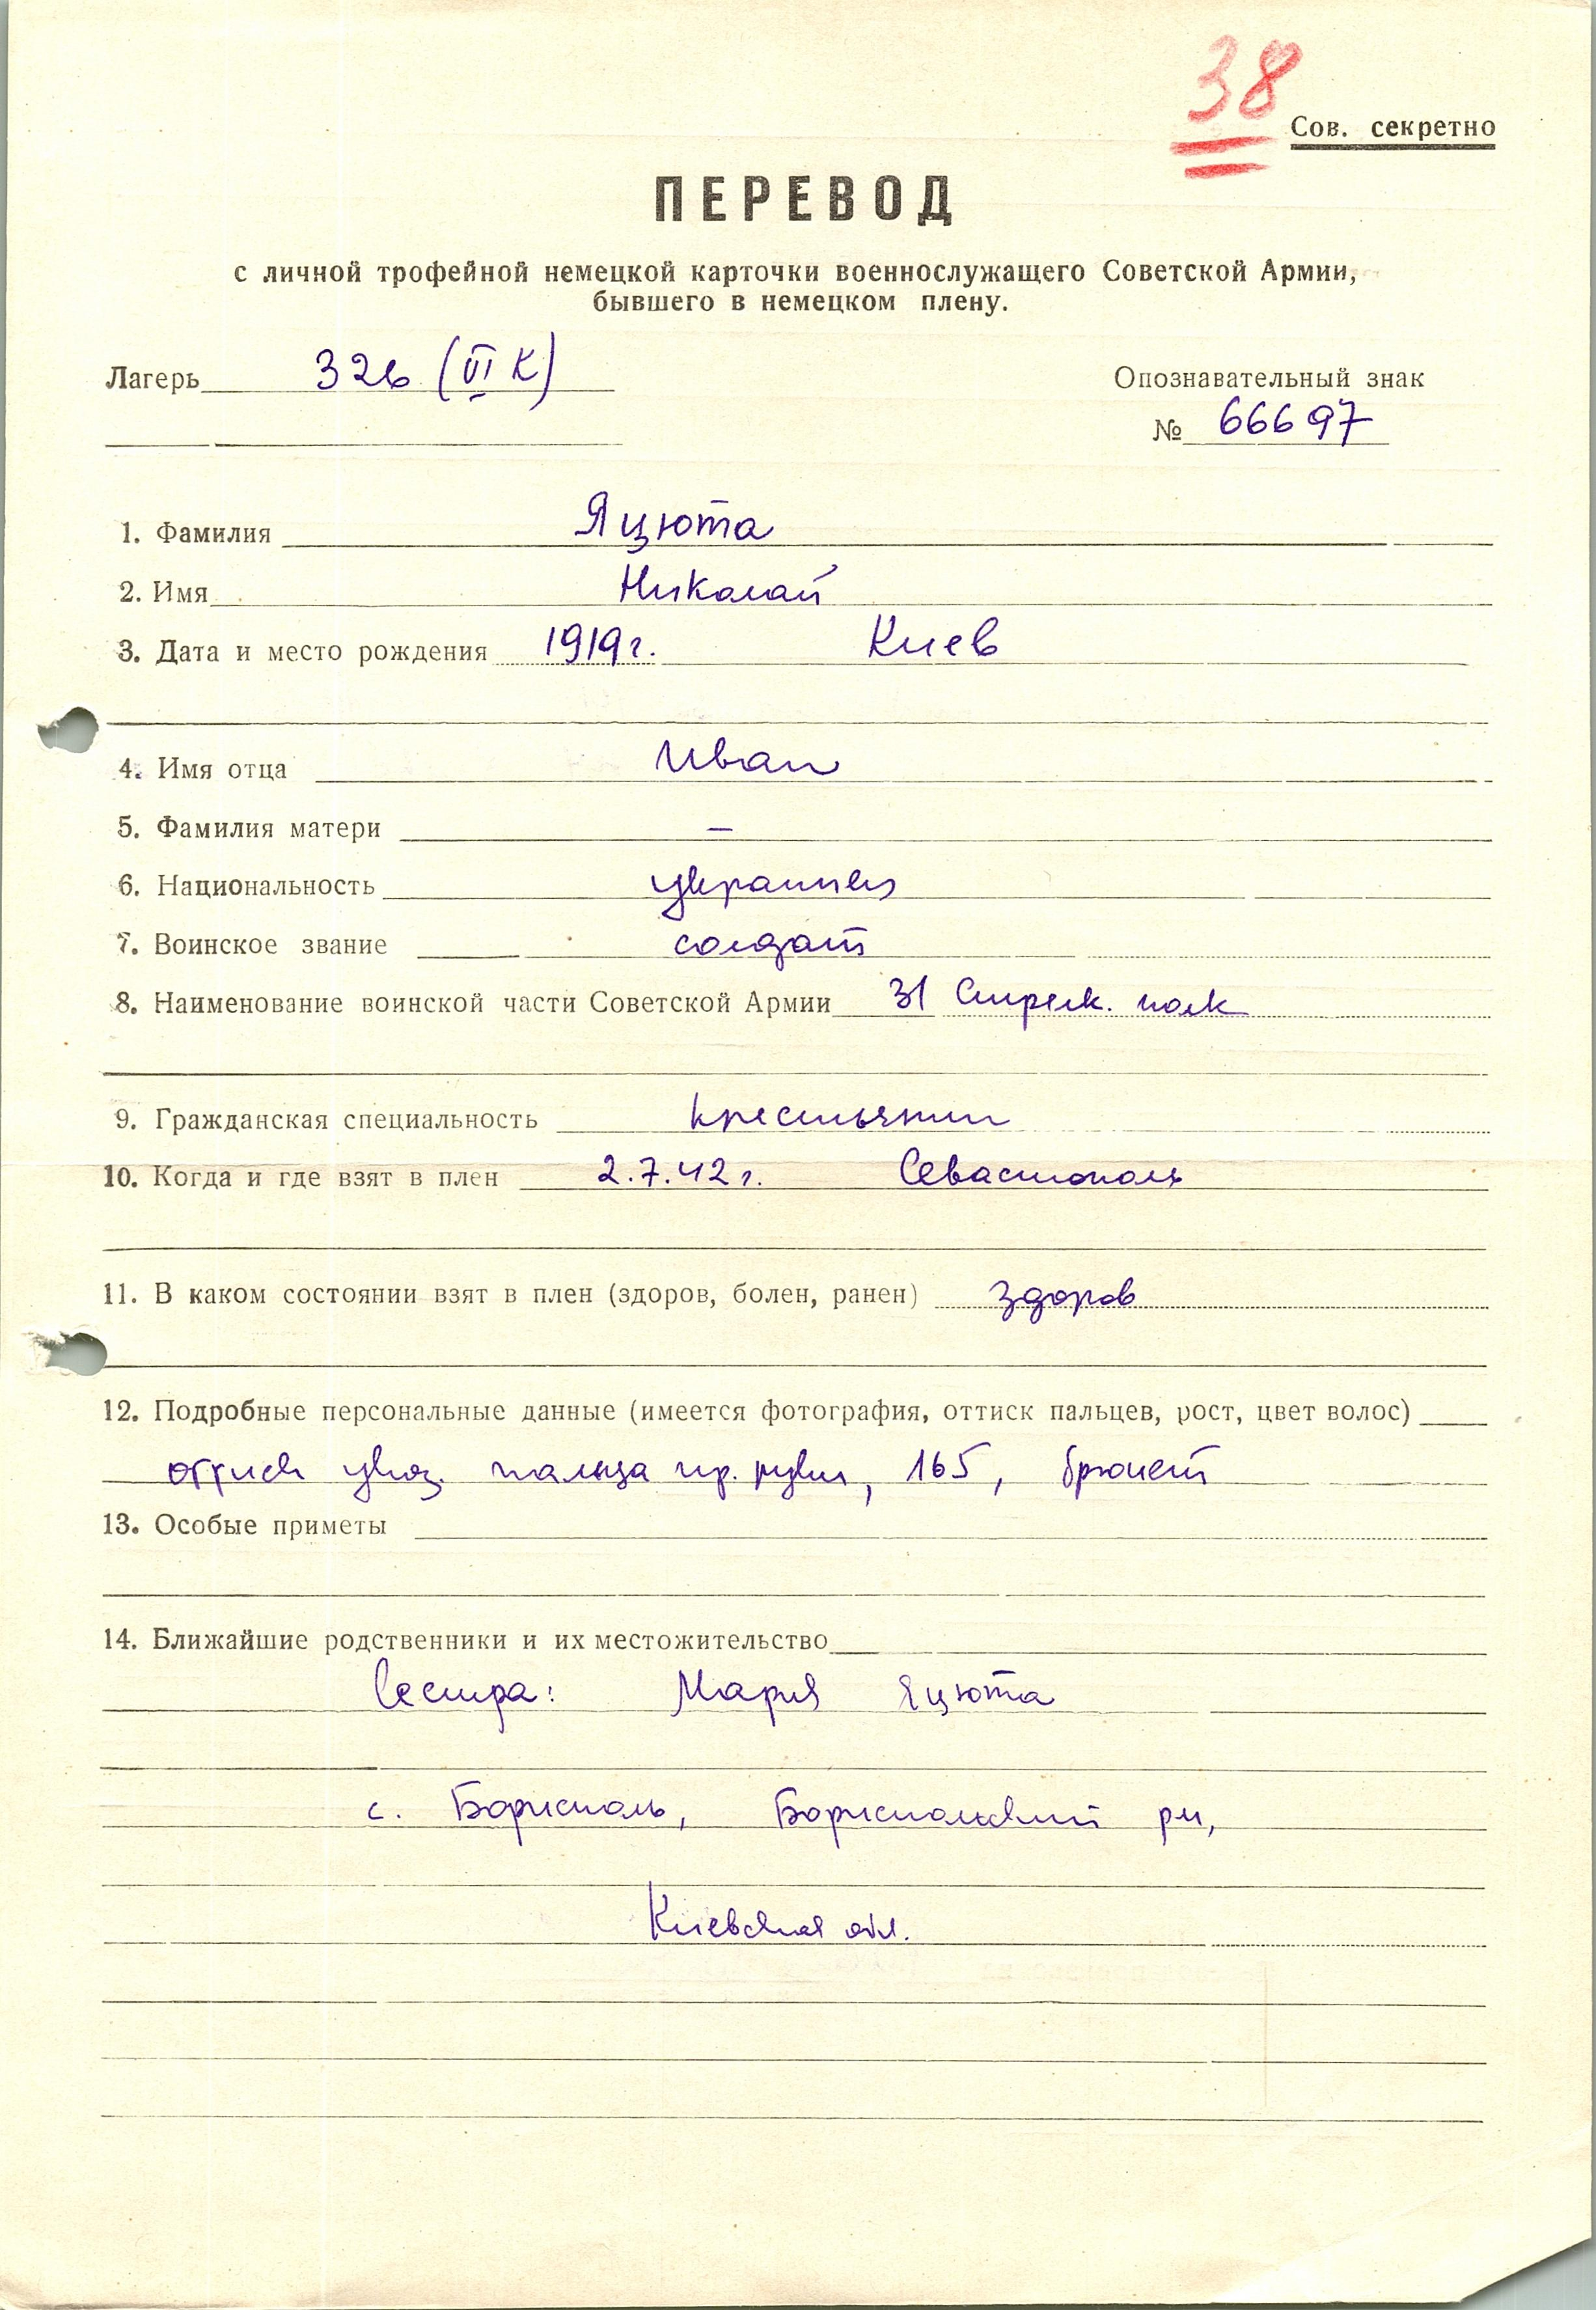 38
Сов. секретно
ПЕРЕВОД
с личной трофейной немецкой карточки военнослужащего Советской Армии,
бывшего в немецком плену.
Лагерь 326 (VI К)
Опознавательный знак
№ 66697
1. Фамилия Яцюта
2. Имя Николай
3. Дата и место рождения 1919 г. Киев
4. Имя отца Иван
5. Фамилия матери –
6. Национальность украинец
7. Воинское звание солдат
8. Наименование воинской части Советской Армии 31 Стрелк. полк
9. Гражданская специальность крестьянин
10. Когда и где взят в плен 2.7.42 г. Севастополь
11. В каком состоянии взят в плен (здоров, болен, ранен) здоров
12. Подробные персональные данные (имеется фотография, оттиск пальцев, рост, цвет волос)
оттиск указ. пальца пр. руки, 165, брюнет
13. Особые приметы
14. Ближайшие родственники и их местожительство
Сестра: Мария Яцюта
с. Борисполь, Бориспольский рн,
Киевская обл.